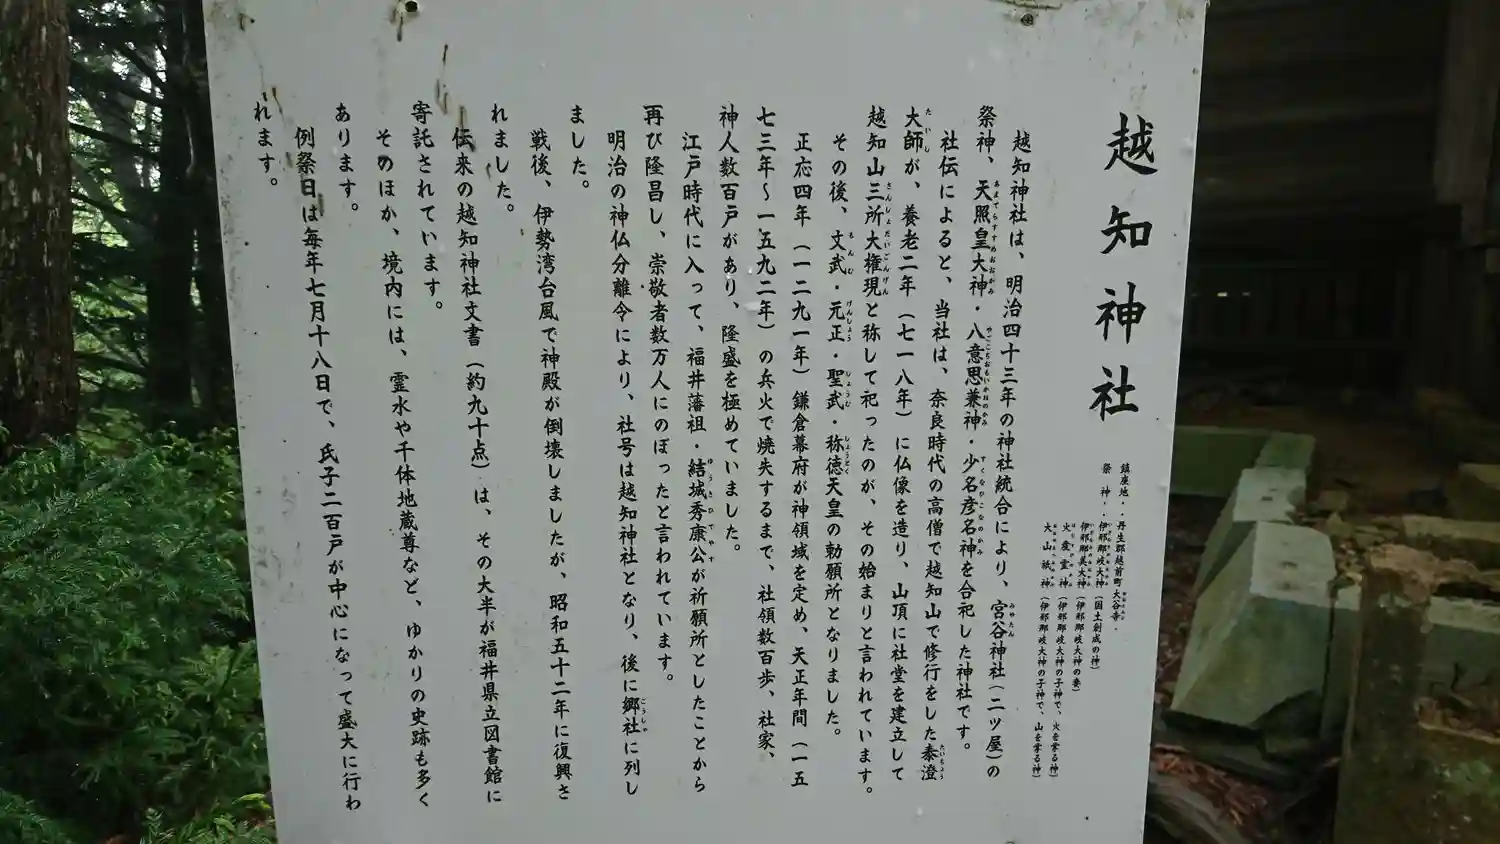 越知神社
鎮座地・・丹生郡越前町大谷寺・
祭神・・伊邪那岐大神(国土創成の神)
伊邪那美大神(伊邪那岐大神の妻)
火産霊神(伊邪那岐大神の子神で、火を掌る神)
大山祇神(伊邪那岐大神の子神で、山を掌る神)
越知神社は、明治四十三年の神社統合により、宮谷神社(二ツ屋)の
祭神、天照皇大神・八意思兼神・少名彦名神を合祀した神社です。
社伝によると、当社は、奈良時代の高僧で越知山で修行をした泰澄
大師が、養老二年(七一八年)に仏像を造り、山頂に社堂を建立して
越知山三所大権現と称して祀ったのが、その始まりと言われています。
その後、文武・元正・聖武・称徳天皇の勅願所となりました。
正応四年(一二九一年)鎌倉幕府が神領域を定め、天正年間(一五
七三年~一五九二年)の兵火で焼失するまで、社領数百歩、社家、
神人数百戸があり、隆盛を極めていました。
江戸時代に入って、福井藩祖・結城秀康公が祈願所としたことから
再び隆昌し、崇敬者数万人にのぼったと言われています。
明治の神仏分離令により、社号は越知神社となり、後に郷社に列し
ました。
戦後、伊勢湾台風で神殿が倒壊しましたが、昭和五十二年に復興さ
れました。
伝来の越知神社文書(約九十点)は、その大半が福井県立図書館に
寄託されています。
そのほか、境内には、霊水や千体地蔵尊など、ゆかりの史跡も多く
あります。
例祭日は毎年七月十八日で、氏子二百戸が中心になって盛大に行わ
れます。